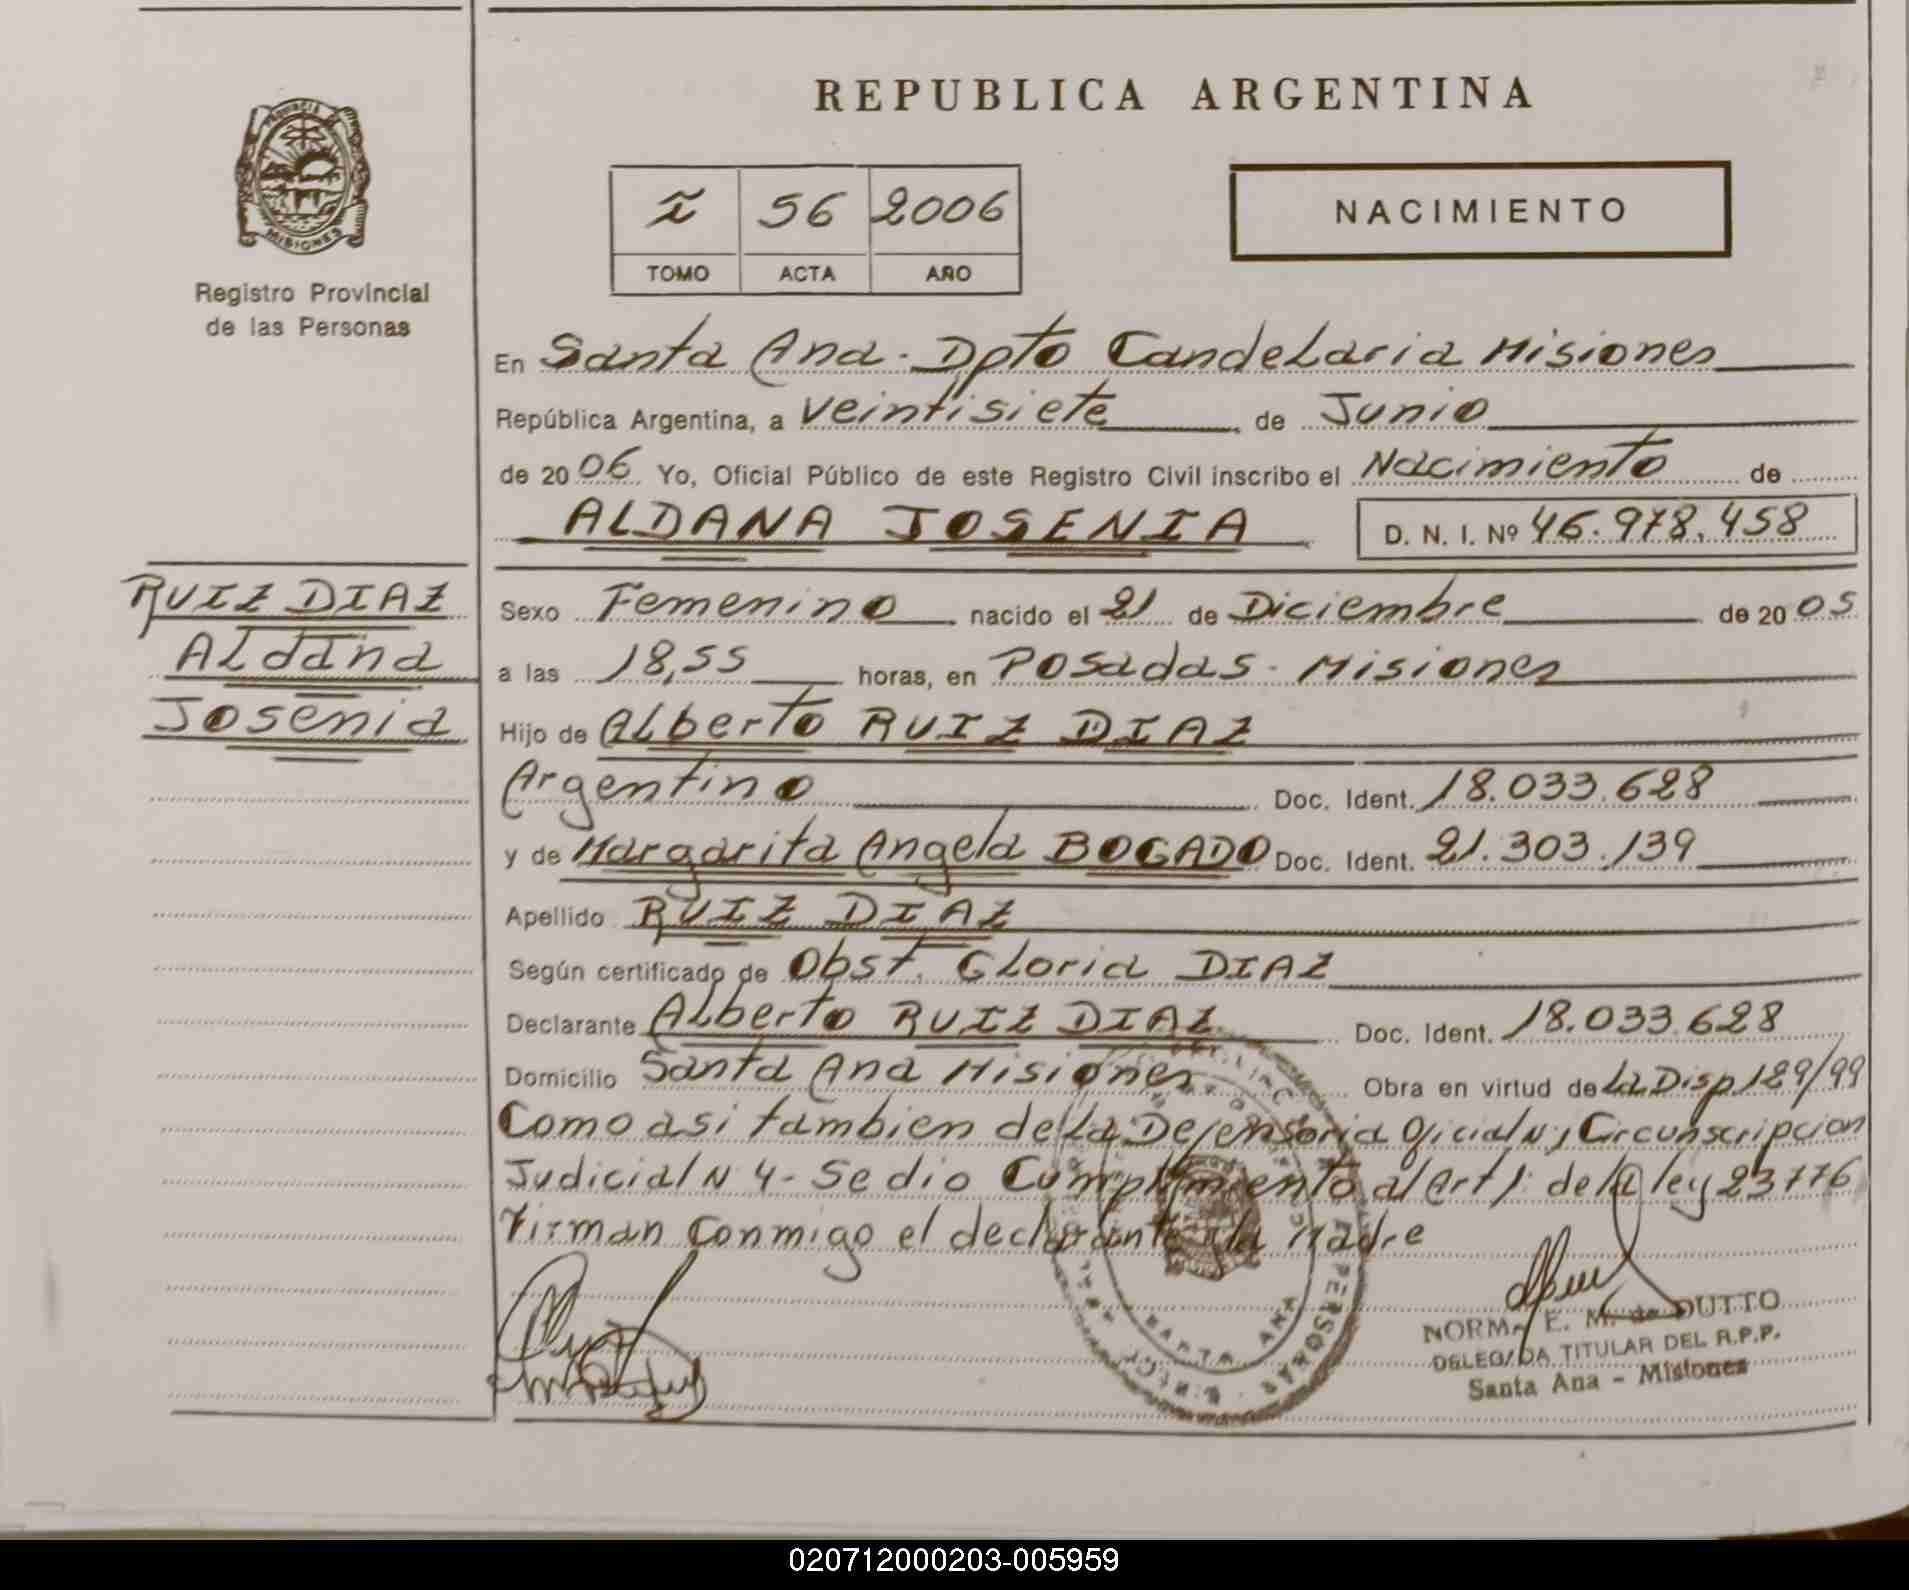 REPUBLICA ARGENTINA
PROVINCIA
MISIONES
Registro Provincial
de las Personas
56 2006
TOMO ACTA AÑO
NACIMIENTO
En Santa Ana. Dpto Candelaria Misiones
República Argentina, a veintisiete de Junio
de 2006 Yo, Oficial Público de este Registro Civil inscribo el Nacimiento de
ALDANA JOSENIA D. N. I. Nº 46.978.458
RUIZ DIAZ
Aldana
Josenia
Sexo Femenino nacido el 21 de Diciembre de 2005
a las 18,55 horas, en Posadas - Misiones
Hijo de Alberto RUIZ DIAZ
Argentino Doc. Ident. 18.033.628
y de Margarita Angela BOGADO Doc. Ident. 21.303.139
Apellido RUIZ DIAZ
Según certificado de Obst. Gloria DIAZ
Declarante Alberto RUIZ DIAZ Doc. Ident. 18.033.628
Domicilio Santa Ana Misiones Obra en virtud de La Disp 189/99
Como asi tambien de la Defensoria Oficial N 1 Circunscripcion
Judicial N 4 - Se dio Cumplimiento al Art 1 de la ley 23776
Firman Conmigo el declarante y la Madre
SANTA ANA
NORMA E. M. de DUTTO
DELEGADA TITULAR DEL R.P.P.
Santa Ana - Misiones
020712000203-005959